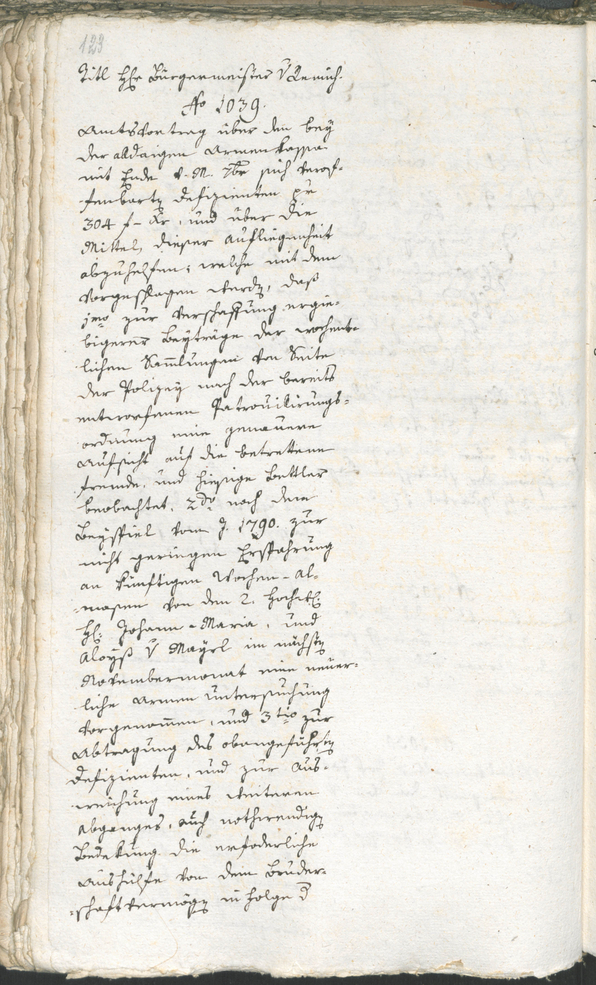 123
Titl Hr Burgermeister v Remich.
No 1039.
Amtsvortrag über den bey
der alldaigen Armen Kassa
mit Ende v. M. 7br sich verof-
fenbartn Defizienten per
304 f - Xr, und über die
Mittel, dieser Aufliegenheit
abzuhelfen; welche mit dem
vorgeschlagen werdn, daß
1mo zur Verschaffung ergie-
bigerer Beyträge der wochent-
lichen Sammlungen von Seite
der Polizey nach der bereits
entworfenen Patrouilirungs-
ordnung eine genauere
Aufsicht auf die betrettene
fremde, und hiesige Bettler
beobachtet. 2do nach dem
Beyspiel vom J. 1790. zur
nicht geringen Ersparung
an künftigen Wochen-Al-
mosen von den 2.
H: Johann-Maria, und
Aloys v Mayrl im nächstn
Novembermonat eine neuer-
liche Armen Untersuchung
vorgenommen, und 3tio zur
Abtragung des obangeführtn
Defizienten, und zur Aus-
weichung eines weiteren
Abganges, auch nothwendign
Bedekung die erforderliche
Aushülfe von dem Bruder-
schaftvermögn in Folge d